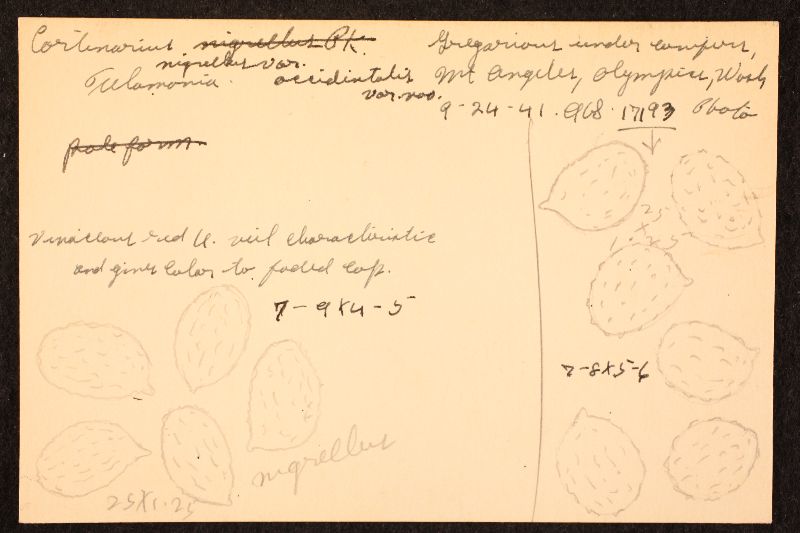 Cortinarius nigrellus Pk.
nigrellus var.
Telamonia. occidentalis
var. nov.
Gregarious under conifers,
Mt Angeles, Olympics, Wash
9-24-41. 968. 17193 Photo
pale form
Vinaceous red U. veil characteristic
and gives color to faded cap.
7-9X4-5
nigrellus
25X1.25
25
1.25
7-8X5-6